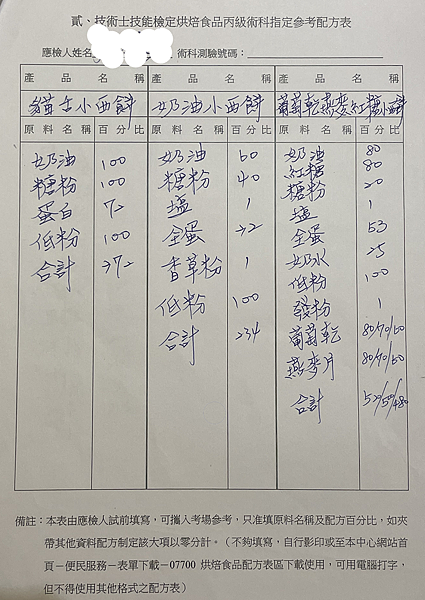 貳、技術士技能檢定烘焙食品丙級術科指定參考配方表
應檢人姓名 術科測驗號碼：
產品名稱 產品名稱 產品名稱
貓舌小西餅 奶油小西餅 葡萄乾燕麥紅糖小西餅
原料名稱 百分比 原料名稱 百分比 原料名稱 百分比
奶油 100
糖粉 100
蛋白 72
低粉 100
合計 372
奶油 60
糖粉 40
塩 1
全蛋 32
香草粉 1
低粉 100
合計 234
奶油 80
紅糖 80
糖粉 20
塩 1
全蛋 53
奶水 25
低粉 100
發粉 1
葡萄乾 80/70/60
燕麥片 80/70/60
合計 520/500/480
備註：本表由應檢人試前填寫，可攜入考場參考，只准填原料名稱及配方百分比，如夾
帶其他資料配方制定該大項以零分計。（不夠填寫，自行影印或至本中心網站首
頁－便民服務－表單下載－07700 烘焙食品配方表區下載使用，可用電腦打字，
但不得使用其他格式之配方表）